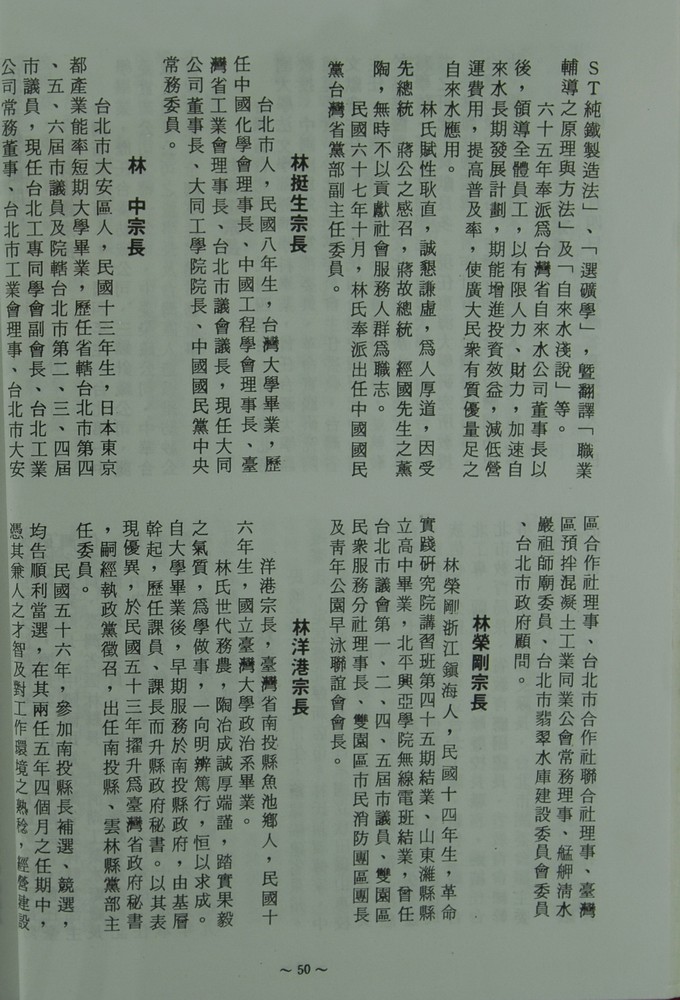 ST純鐵製造法」、「選礦學」，暨翻譯「職業
輔導之原理與方法」及「自來水淺說」等。
六十五年奉派為台灣省自來水公司董事長以
後，領導全體員工，以有限人力、財力，加速自
來水長期發展計劃，期能增進投資效益，減低營
運費用，提高普及率，使廣大民衆有質優量足之
自來水應用。
林氏賦性耿直，誠懇謙虛，為人厚道，因受
先總統　蔣公之感召，蔣故總統　經國先生之薰
陶，無時不以貢獻社會服務人群為職志。
民國六十七年十月，林氏奉派出任中國國民
黨台灣省黨部副主任委員。
林挺生宗長
台北市人，民國八年生，台灣大學畢業，歷
任中國化學會理事長、中國工程學會理事長、臺
灣省工業會理事長、台北市議會議長，現任大同
公司董事長、大同工學院院長、中國國民黨中央
常務委員。
林　中宗長
台北市大安區人，民國十三年生，日本東京
都產業能率短期大學畢業，歷任省轄台北市第四
、五、六屆市議員及院轄台北市第二、三、四屆
市議員，現任台北工專同學會副會長、台北工業
公司常務董事、台北市工業會理事、台北市大安
區合作社理事、台北市合作社聯合社理事、臺灣
區預拌混凝土工業同業公會常務理事、艋舺清水
巖祖師廟委員、台北市翡翠水庫建設委員會委員
、台北市政府顧問。
林榮剛宗長
林榮剛浙江鎮海人，民國十四年生，革命
實踐研究院講習班第四十五期結業、山東濰縣縣
立高中畢業，北平興亞學院無線電班結業，曾任
台北市議會第一、二、四、五屆市議員、雙園區
民衆服務分社理事長、雙園區市民消防團區團長
及青年公園早泳聯誼會會長。
林洋港宗長
洋港宗長，臺灣省南投縣魚池鄉人，民國十
六年生，國立臺灣大學政治系畢業。
林氏世代務農，陶冶成誠厚端謹，踏實果毅
之氣質，為學做事，一向明辨篤行，恒以求成。
自大學畢業後，早期服務於南投縣政府，由基層
幹起，歷任課員、課長而升縣政府秘書。以其表
現優異，於民國五十三年擢升為臺灣省政府秘書
，嗣經執政黨徵召，出任南投縣、雲林縣黨部主
任委員。
民國五十六年，參加南投縣長補選、競選，
均告順利當選，在其兩任五年四個月之任期中，
憑其兼人之才智及對工作環境之熟稔，經營建設
～50～